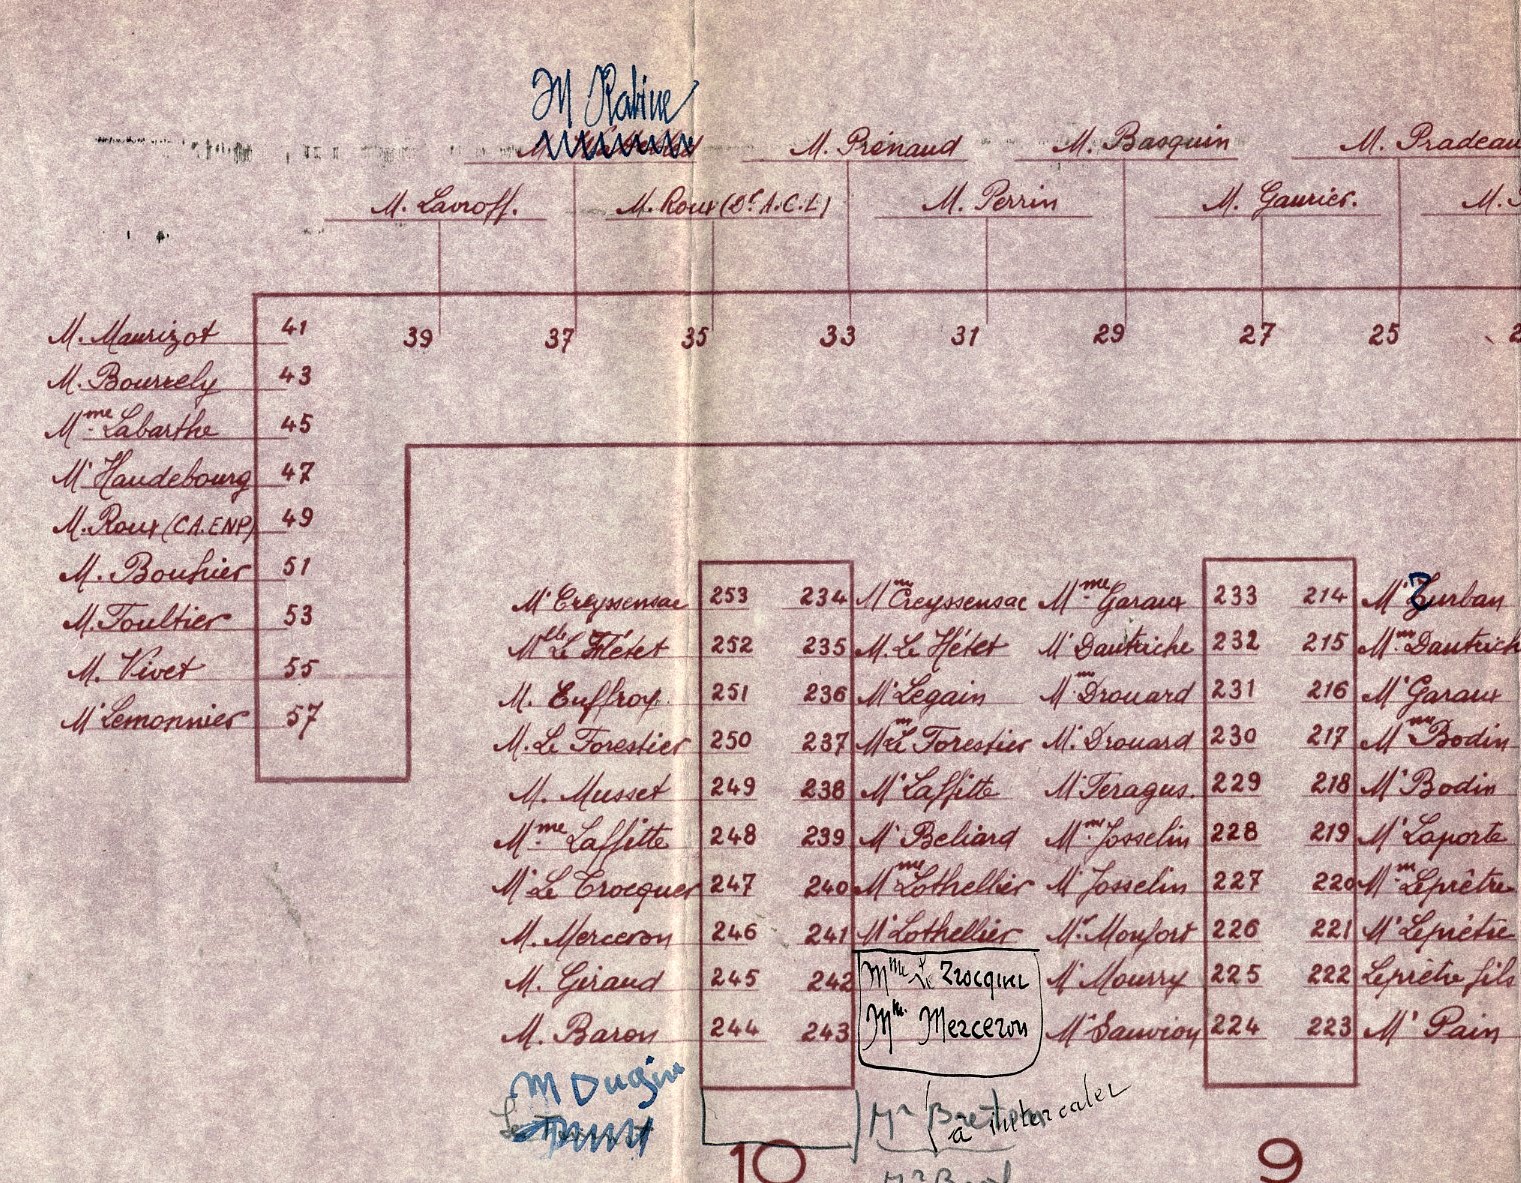 M Rabine
M. Prénaud M. Basquin M. Pradeau
M. Lavroff. M. Roux (Dr A.C.L) M. Perrin M. Gaurier. M.
39 37 35 33 31 29 27 25 2
M. Maurizot 41
M. Bourrely 43
Mme Labarthe 45
Mr Haudebourg 47
M. Roux (CA.ENP) 49
M. Bouhier 51
M. Foultier 53
M. Vivet 55
Mr Lemonnier 57
Mr Creyssensac 253 234 Mme Creyssensac Mme Garaux 233 214 Mr Turban
Mlle Le Hétet 252 235 M. Le Hétet Mr Dautriche 232 215 Mme Dautrich
M. Euffroy. 251 236 Mr Legain Mme Drouard 231 216 Mr Garaux
M. Le Forestier 250 237 Mme Le Forestier M. Drouard 230 217 Mme Bodin
M. Musset 249 238 Mr Laffitte Mr Feragus. 229 218 Mr Bodin
Mme Laffitte 248 239 Mr Beliard Mme Josselin 228 219 Mr Laporte
Mr Le Trocquer 247 240 Mme Lothellier Mr Josselin 227 220 Mme Leprêtre
M. Merceron 246 241 Mr Lothellier Mr Monfort 226 221 Mr Leprêtre
M. Giraud 245 242 Mme Le Trocquer Mr Mourry 225 222 Leprêtre fils
M. Baron 244 243 Mme Merceron Mr Sauvion 224 223 Mr Pain
M Dugin
Mr
à intercaler
10 9